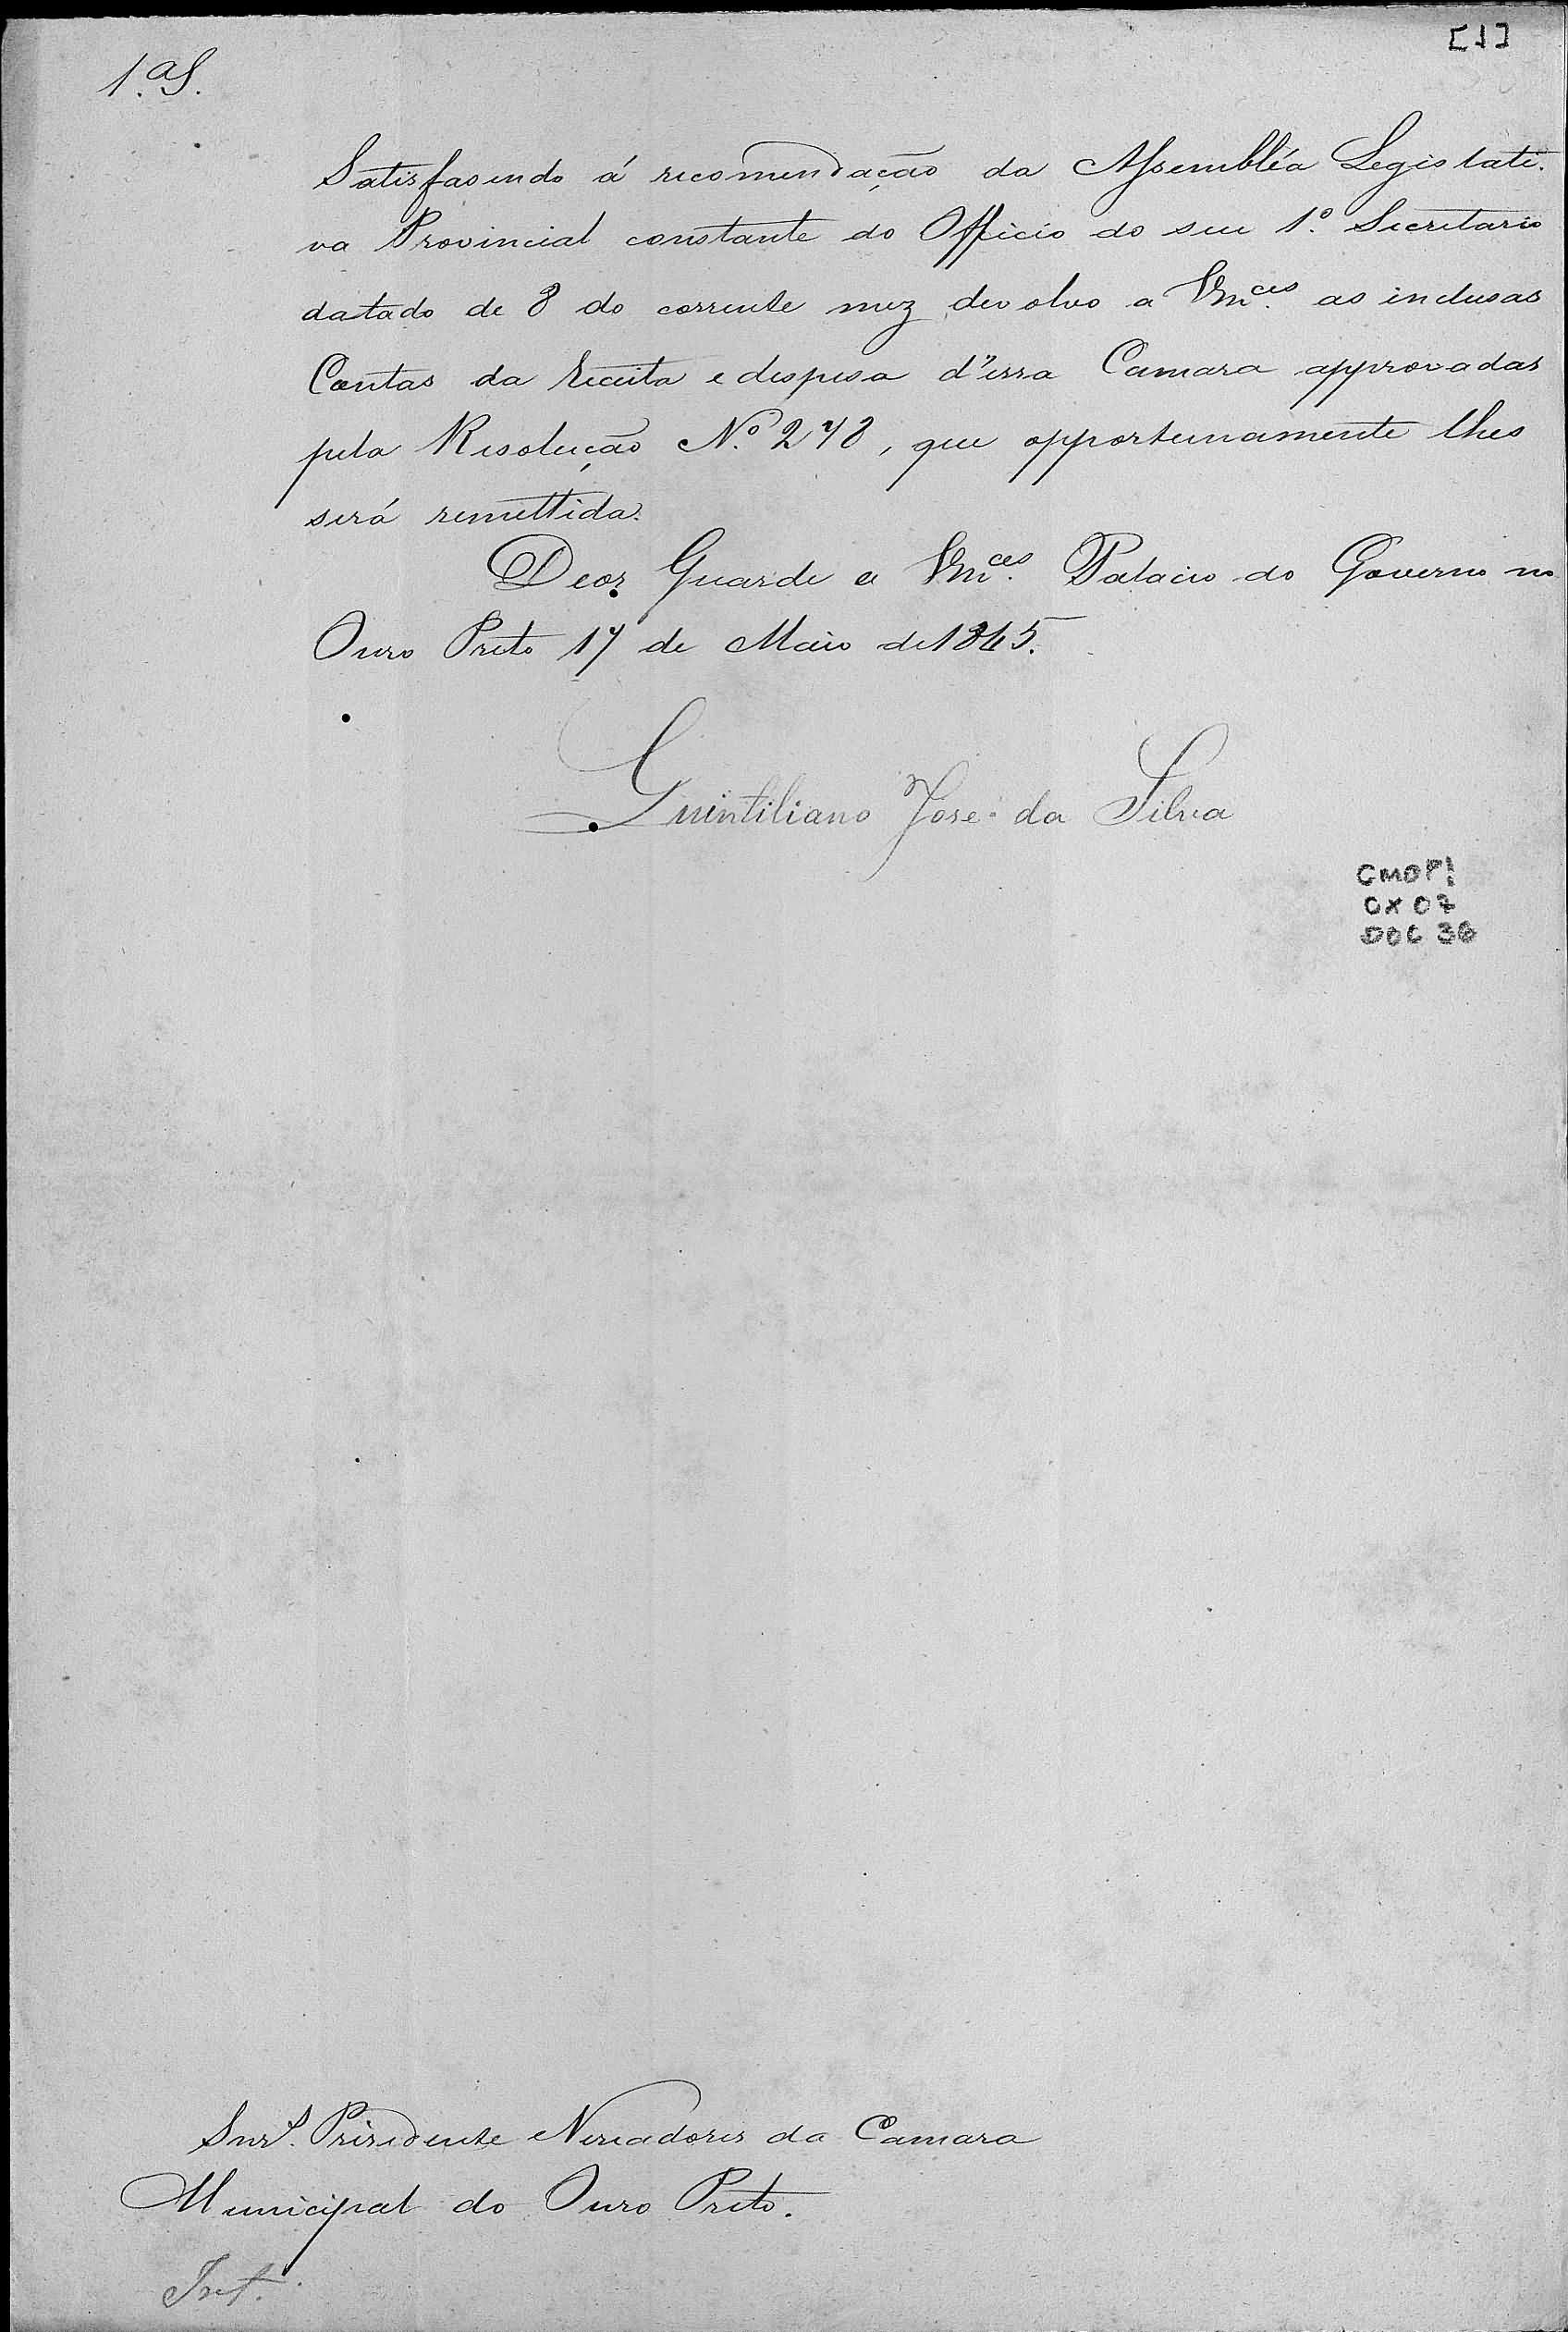 [1]
1.ª S.
Satisfasendo á recommendação da Assembléa Legislati-
va Provincial constante do Officio do seu 1.º Secretario
datado de 8 do corrente mez devolvo a Vm.ces as inclusas
Contas da Receita e despesa d'essa Camara approvadas
pela Resolução N.º 278, que opportunamente lhes
será remettida.
Deos Guarde a Vm.ces Palacio do Governo no
Ouro Preto 17 de Maio de 1845.
Quintiliano José da Silva
CMOP
CX 07
DOC 36
Snr.s Presidente e Vereadores da Camara
Municipal do Ouro Preto.